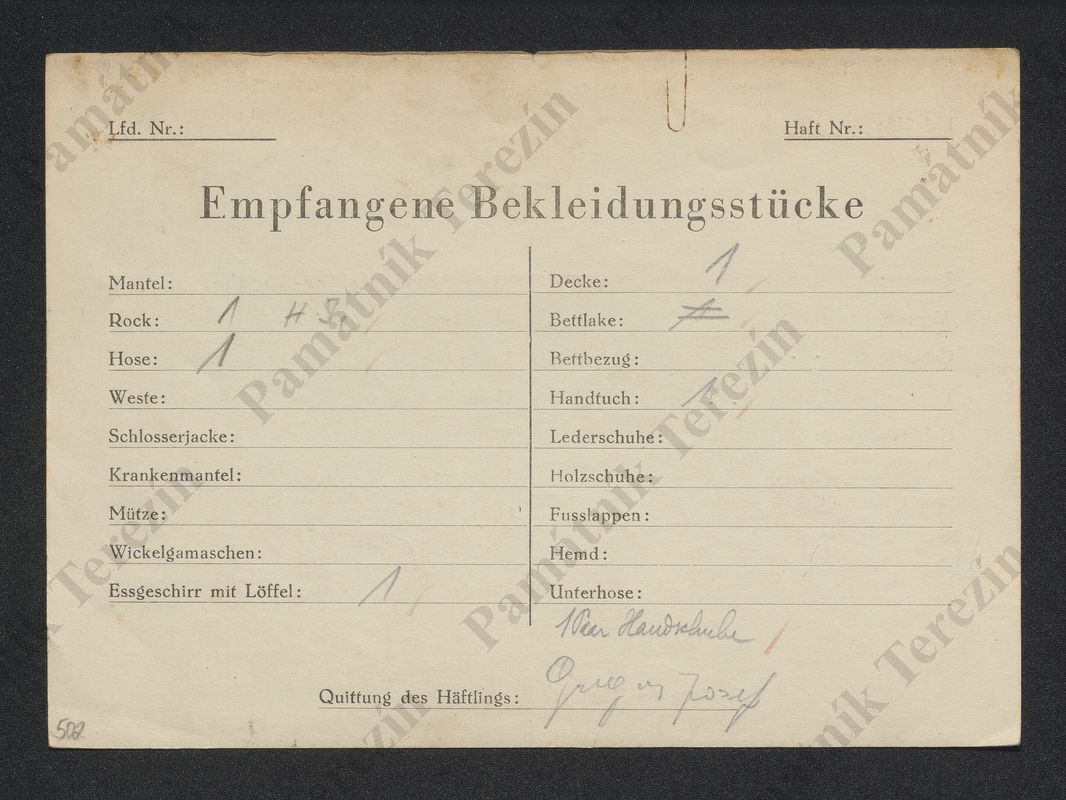 Lfd. Nr.:
Haft Nr.:
Empfangene Bekleidungsstücke
Mantel:
Rock: 1
Hose: 1
Weste:
Schlosserjacke:
Krankenmantel:
Mütze:
Wickelgamaschen:
Essgeschirr mit Löffel: 1
Decke: 1
Bettlake: 1
Bettbezug:
Handtuch: 1
Lederschuhe:
Holzschuhe:
Fusslappen:
Hemd:
Unterhose:
1 Paar Handschuhe
Quittung des Häftlings: Josef
502
Památník Terezín